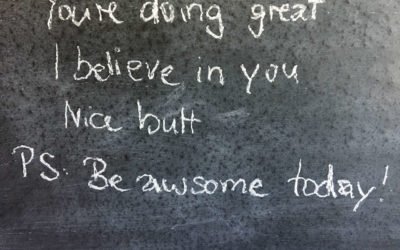 You're doing great
I believe in you
Nice butt
PS. Be awsome today!